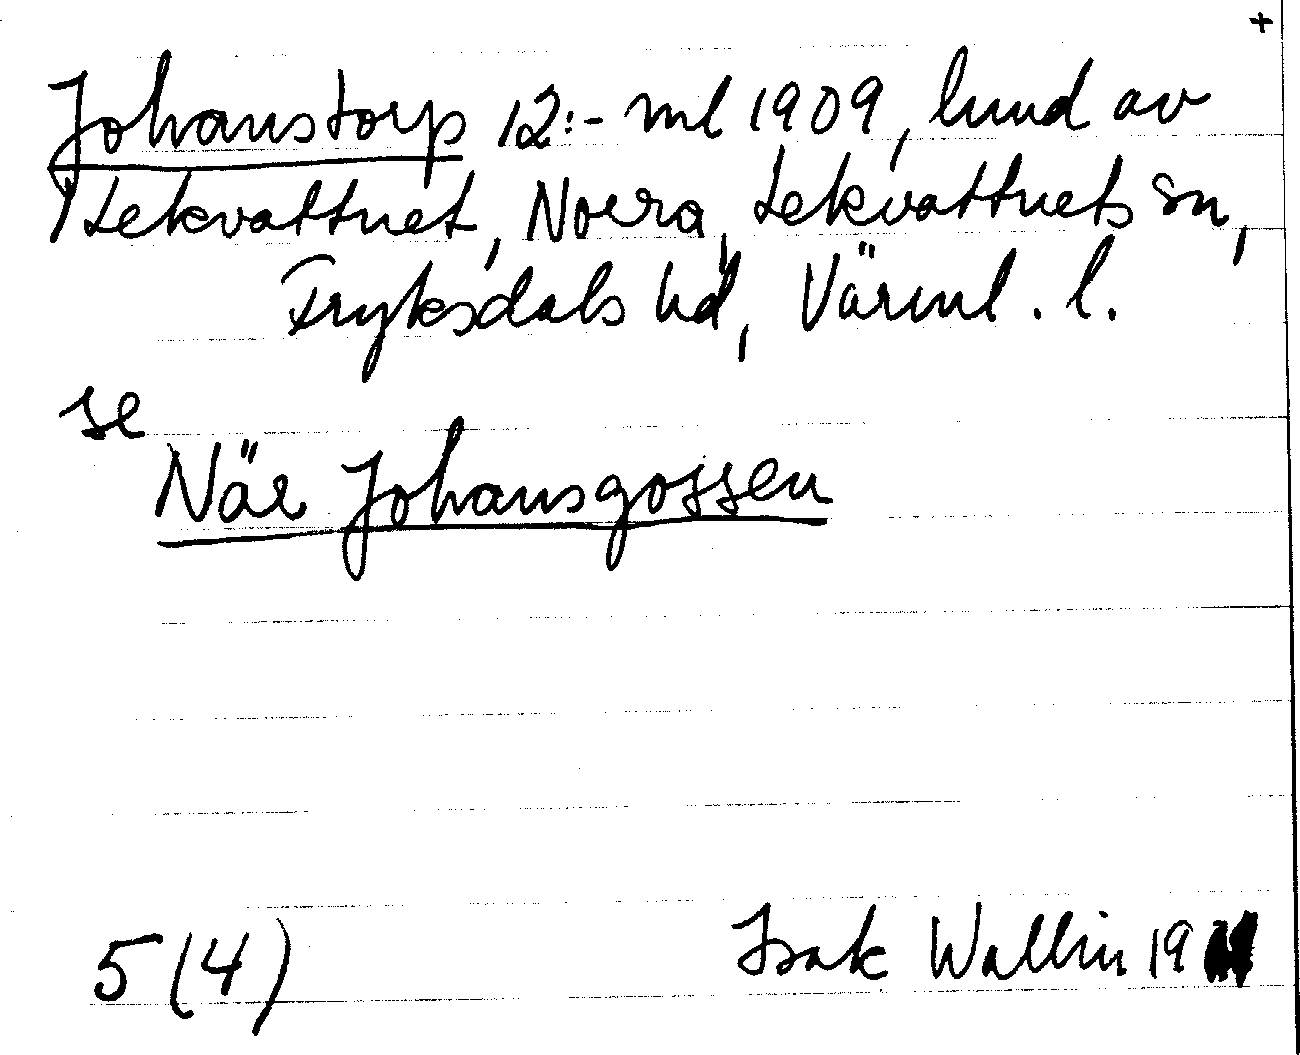 +
Johanstorp 12:- ml 1909, lund av
Lekvattnet, Norra, Lekvattnets sn,
Fryksdals hd, Värml. l.
se
När Johansgossen
5(4)
Isak Wallin 19